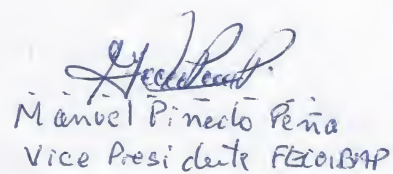 Manuel Piñedo Peña
Vice Presidente FECOIBAP